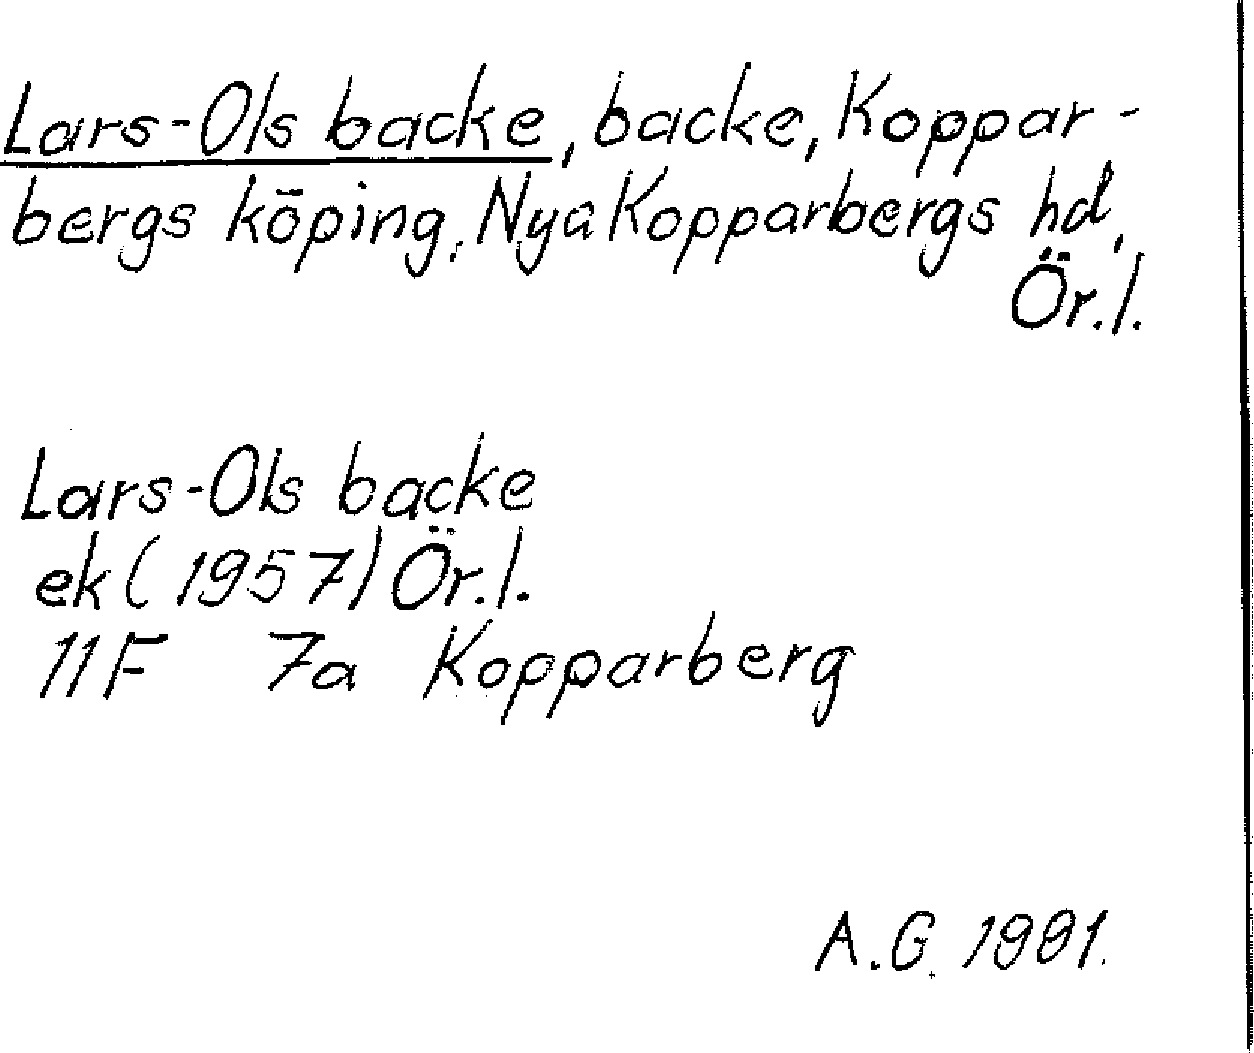 Lars-Ols backe, backe, Koppar-
bergs köping, Nya Kopparbergs hd,
Ör.l.
Lars-Ols backe
ek (1957) Ör.l.
11F 7a Kopparberg
A.G. 1991.